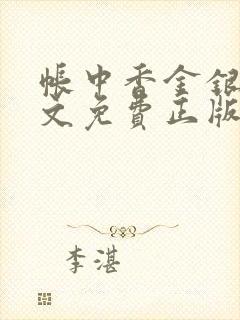 帳中香金銀
文免費正版
李湛